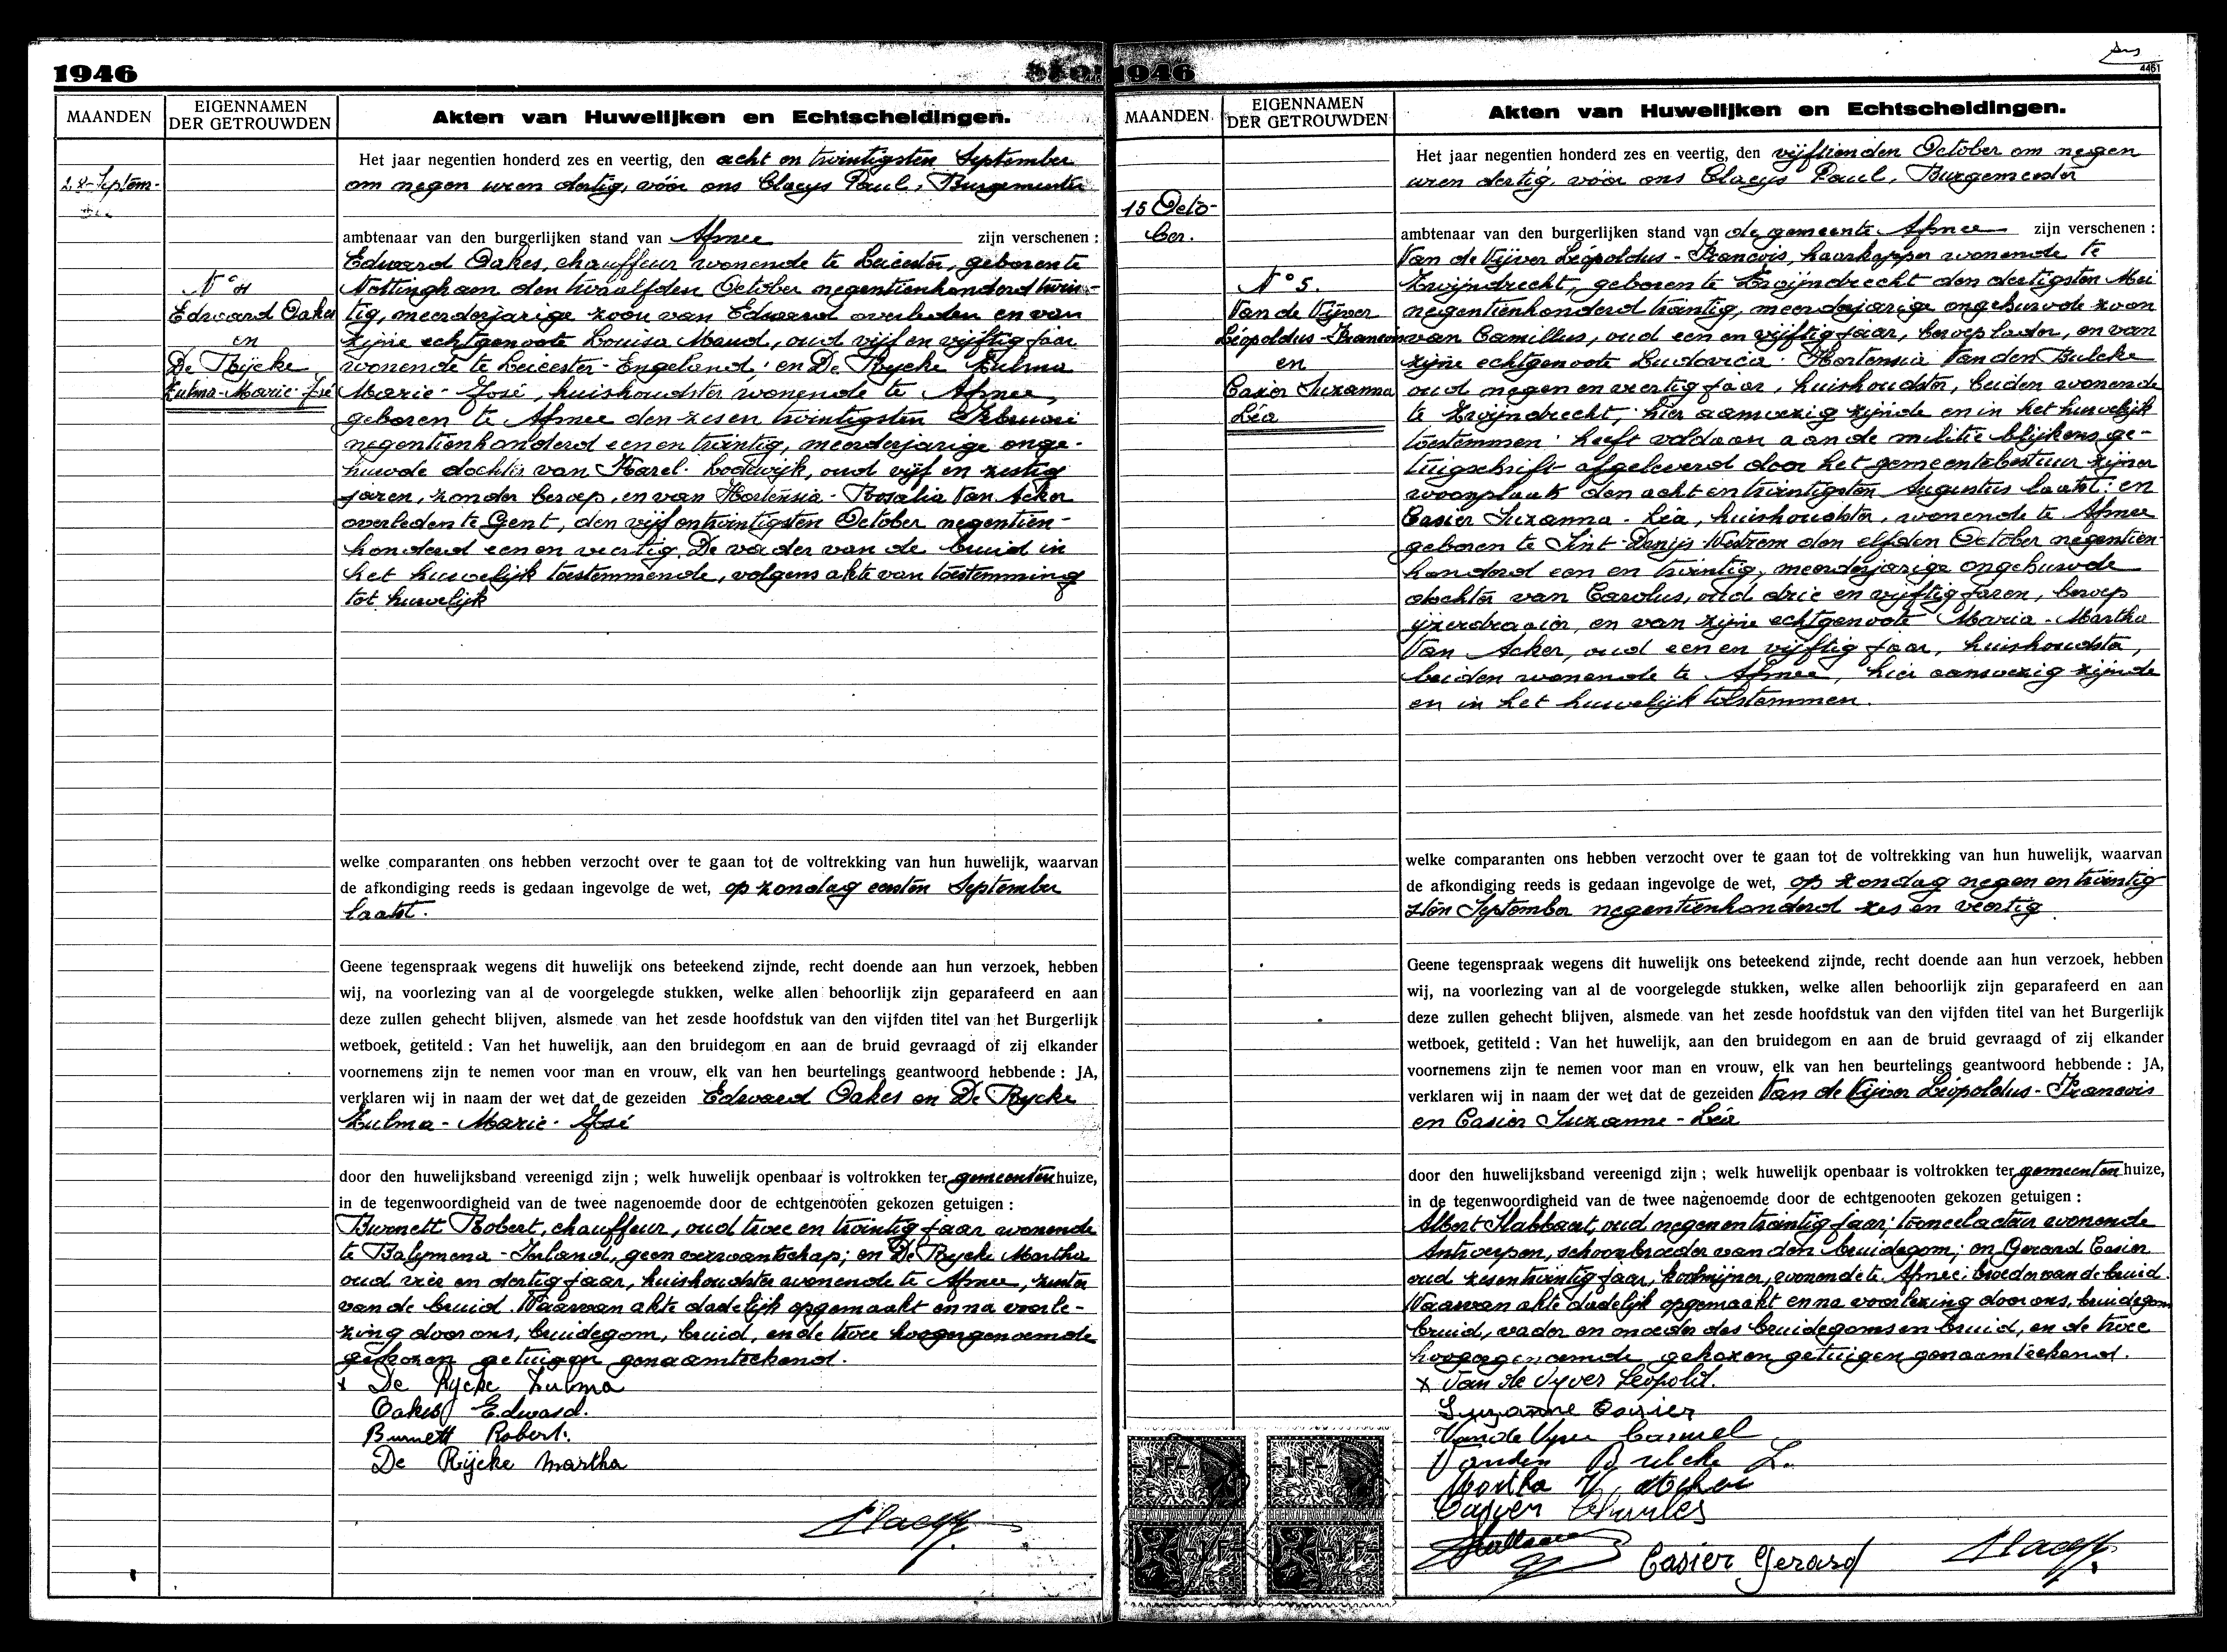 1946
MAANDEN
EIGENNAMEN
DER GETROUWDEN
Akten van Huwelijken en Echtscheidingen.
28 Septem-
ber
N° 4
Edward Oakes
en
De Rijcke
Zulma-Marie-José
Het jaar negentien honderd zes en veertig, den acht en twintigsten September
om negen uren dertig, vóór ons Claeys Paul, Burgemeester
ambtenaar van den burgerlijken stand van Afsnee zijn verschenen :
Edward Oakes, chauffeur wonende te Leicester, geboren te
Nottingham den twaalfden October negentienhonderd twin-
tig, meerderjarige zoon van Edward overleden en van
zijne echtgenoote Louisa Maud, oud vijf en vijftig jaar
wonende te Leicester-Engeland; en De Rycke Zulma
Marie-José, huishoudster wonende te Afsnee,
geboren te Afsnee den zes en twintigsten Februari
negentienhonderd een en twintig, meerderjarige onge-
huwde dochter van Karel-Lodewijk, oud vijf en zestig
jaren, zonder beroep, en van Hortensia-Rosalia Van Acker
overleden te Gent, den vijf en twintigsten October negentien-
honderd een en veertig. De vader van de bruid in
het huwelijk toestemmende, volgens akte van toestemming
tot huwelijk
welke comparanten ons hebben verzocht over te gaan tot de voltrekking van hun huwelijk, waarvan
de afkondiging reeds is gedaan ingevolge de wet, op zondag eersten September
laatst.
Geene tegenspraak wegens dit huwelijk ons beteekend zijnde, recht doende aan hun verzoek, hebben
wij, na voorlezing van al de voorgelegde stukken, welke allen behoorlijk zijn geparafeerd en aan
deze zullen gehecht blijven, alsmede van het zesde hoofdstuk van den vijfden titel van het Burgerlijk
wetboek, getiteld : Van het huwelijk, aan den bruidegom en aan de bruid gevraagd of zij elkander
voornemens zijn te nemen voor man en vrouw, elk van hen beurtelings geantwoord hebbende : JA,
verklaren wij in naam der wet dat de gezeiden Edward Oakes en De Rycke
Zulma-Marie-José
door den huwelijksband vereenigd zijn ; welk huwelijk openbaar is voltrokken ter gemeentenhuize,
in de tegenwoordigheid van de twee nagenoemde door de echtgenooten gekozen getuigen :
Burnett Robert, chauffeur, oud twee en twintig jaar wonende
te Balymena-Ierland, geen verwantschap; en De Rycke Martha
oud vier en dertig jaar, huishoudster wonende te Afsnee, zuster
van de bruid. Waarvan akte dadelijk opgemaakt en na voorle-
zing door ons, bruidegom, bruid, en de twee hoogergenoemde
gekozen getuigen genaamteekend.
x De Rycke Zulma
Oakes Edward.
Burnett Robert.
De Rijcke Martha
Claeys
1946
4461
MAANDEN
EIGENNAMEN
DER GETROUWDEN
Akten van Huwelijken en Echtscheidingen.
15 Octo-
ber.
N° 5.
Van de Vijver
Léopoldus-Francois
en
Casier Suzanna
Léa
Het jaar negentien honderd zes en veertig, den vijftienden October om negen
uren dertig, vóór ons Claeys Paul, Burgemeester
ambtenaar van den burgerlijken stand van de gemeente Afsnee zijn verschenen :
Van de Vijver Léopoldus-Francois, haarkapper wonende te
Zwijndrecht, geboren te Zwijndrecht den dertigsten Mei
negentienhonderd twintig, meerderjarige ongehuwde zoon
van Camillus, oud een en vijftig jaar, beroep lader, en van
zijne echtgenoote Ludovica-Hortensia Van den Bulcke
oud negen en veertig jaar, huishoudster, beiden wonende
te Zwijndrecht, hier aanwezig zijnde en in het huwelijk
toestemmen; heeft voldaan aan de militie blijkens ge-
tuigschrift afgeleverd door het gemeentebestuur zijner
woonplaats den acht en twintigsten Augustus laatst; en
Casier Suzanna-Léa, huishoudster, wonende te Afsnee
geboren te Sint-Denijs-Westrem den elfden October negentien
honderd een en twintig, meerderjarige ongehuwde
dochter van Carolus, oud drie en vijftig jaren, beroep
ijzerdraaier, en van zijne echtgenoote Maria-Martha
Van Acker, oud een en vijftig jaar, huishoudster,
beiden wonende te Afsnee, hier aanwezig zijnde
en in het huwelijk toestemmen.
welke comparanten ons hebben verzocht over te gaan tot de voltrekking van hun huwelijk, waarvan
de afkondiging reeds is gedaan ingevolge de wet, op zondag negen en twintig
sten September negentienhonderd zes en veertig
Geene tegenspraak wegens dit huwelijk ons beteekend zijnde, recht doende aan hun verzoek, hebben
wij, na voorlezing van al de voorgelegde stukken, welke allen behoorlijk zijn geparafeerd en aan
deze zullen gehecht blijven, alsmede van het zesde hoofdstuk van den vijfden titel van het Burgerlijk
wetboek, getiteld : Van het huwelijk, aan den bruidegom en aan de bruid gevraagd of zij elkander
voornemens zijn te nemen voor man en vrouw, elk van hen beurtelings geantwoord hebbende : JA,
verklaren wij in naam der wet dat de gezeiden Van de Vijver Léopoldus-Francois
en Casier Suzanne-Léa
door den huwelijksband vereenigd zijn ; welk huwelijk openbaar is voltrokken ter gemeentenhuize,
in de tegenwoordigheid van de twee nagenoemde door de echtgenooten gekozen getuigen :
Albert Slabbaert, oud negen en twintig jaar; tooneelacteur wonende
Antwerpen, schoonbroeder van den bruidegom; en Gerard Casier
oud zes en twintig jaar, koolmijner, wonende te Afsnee; broeder van de bruid.
Waarvan akte dadelijk opgemaakt en na voorlezing door ons, bruidegom
bruid, vader en moeder des bruidegoms en bruid, en de twee
hoogergenoemde gekozen getuigen genaamteekend.
x Van de Vyver Leopold.
Suzanne Casier
Van de Vyver Camiel
Vanden Bulcke L.
Martha V. Acker
Casier Charles
Casier Gerard
Claeys
-1F-
-1F-
-1F-
-1F-